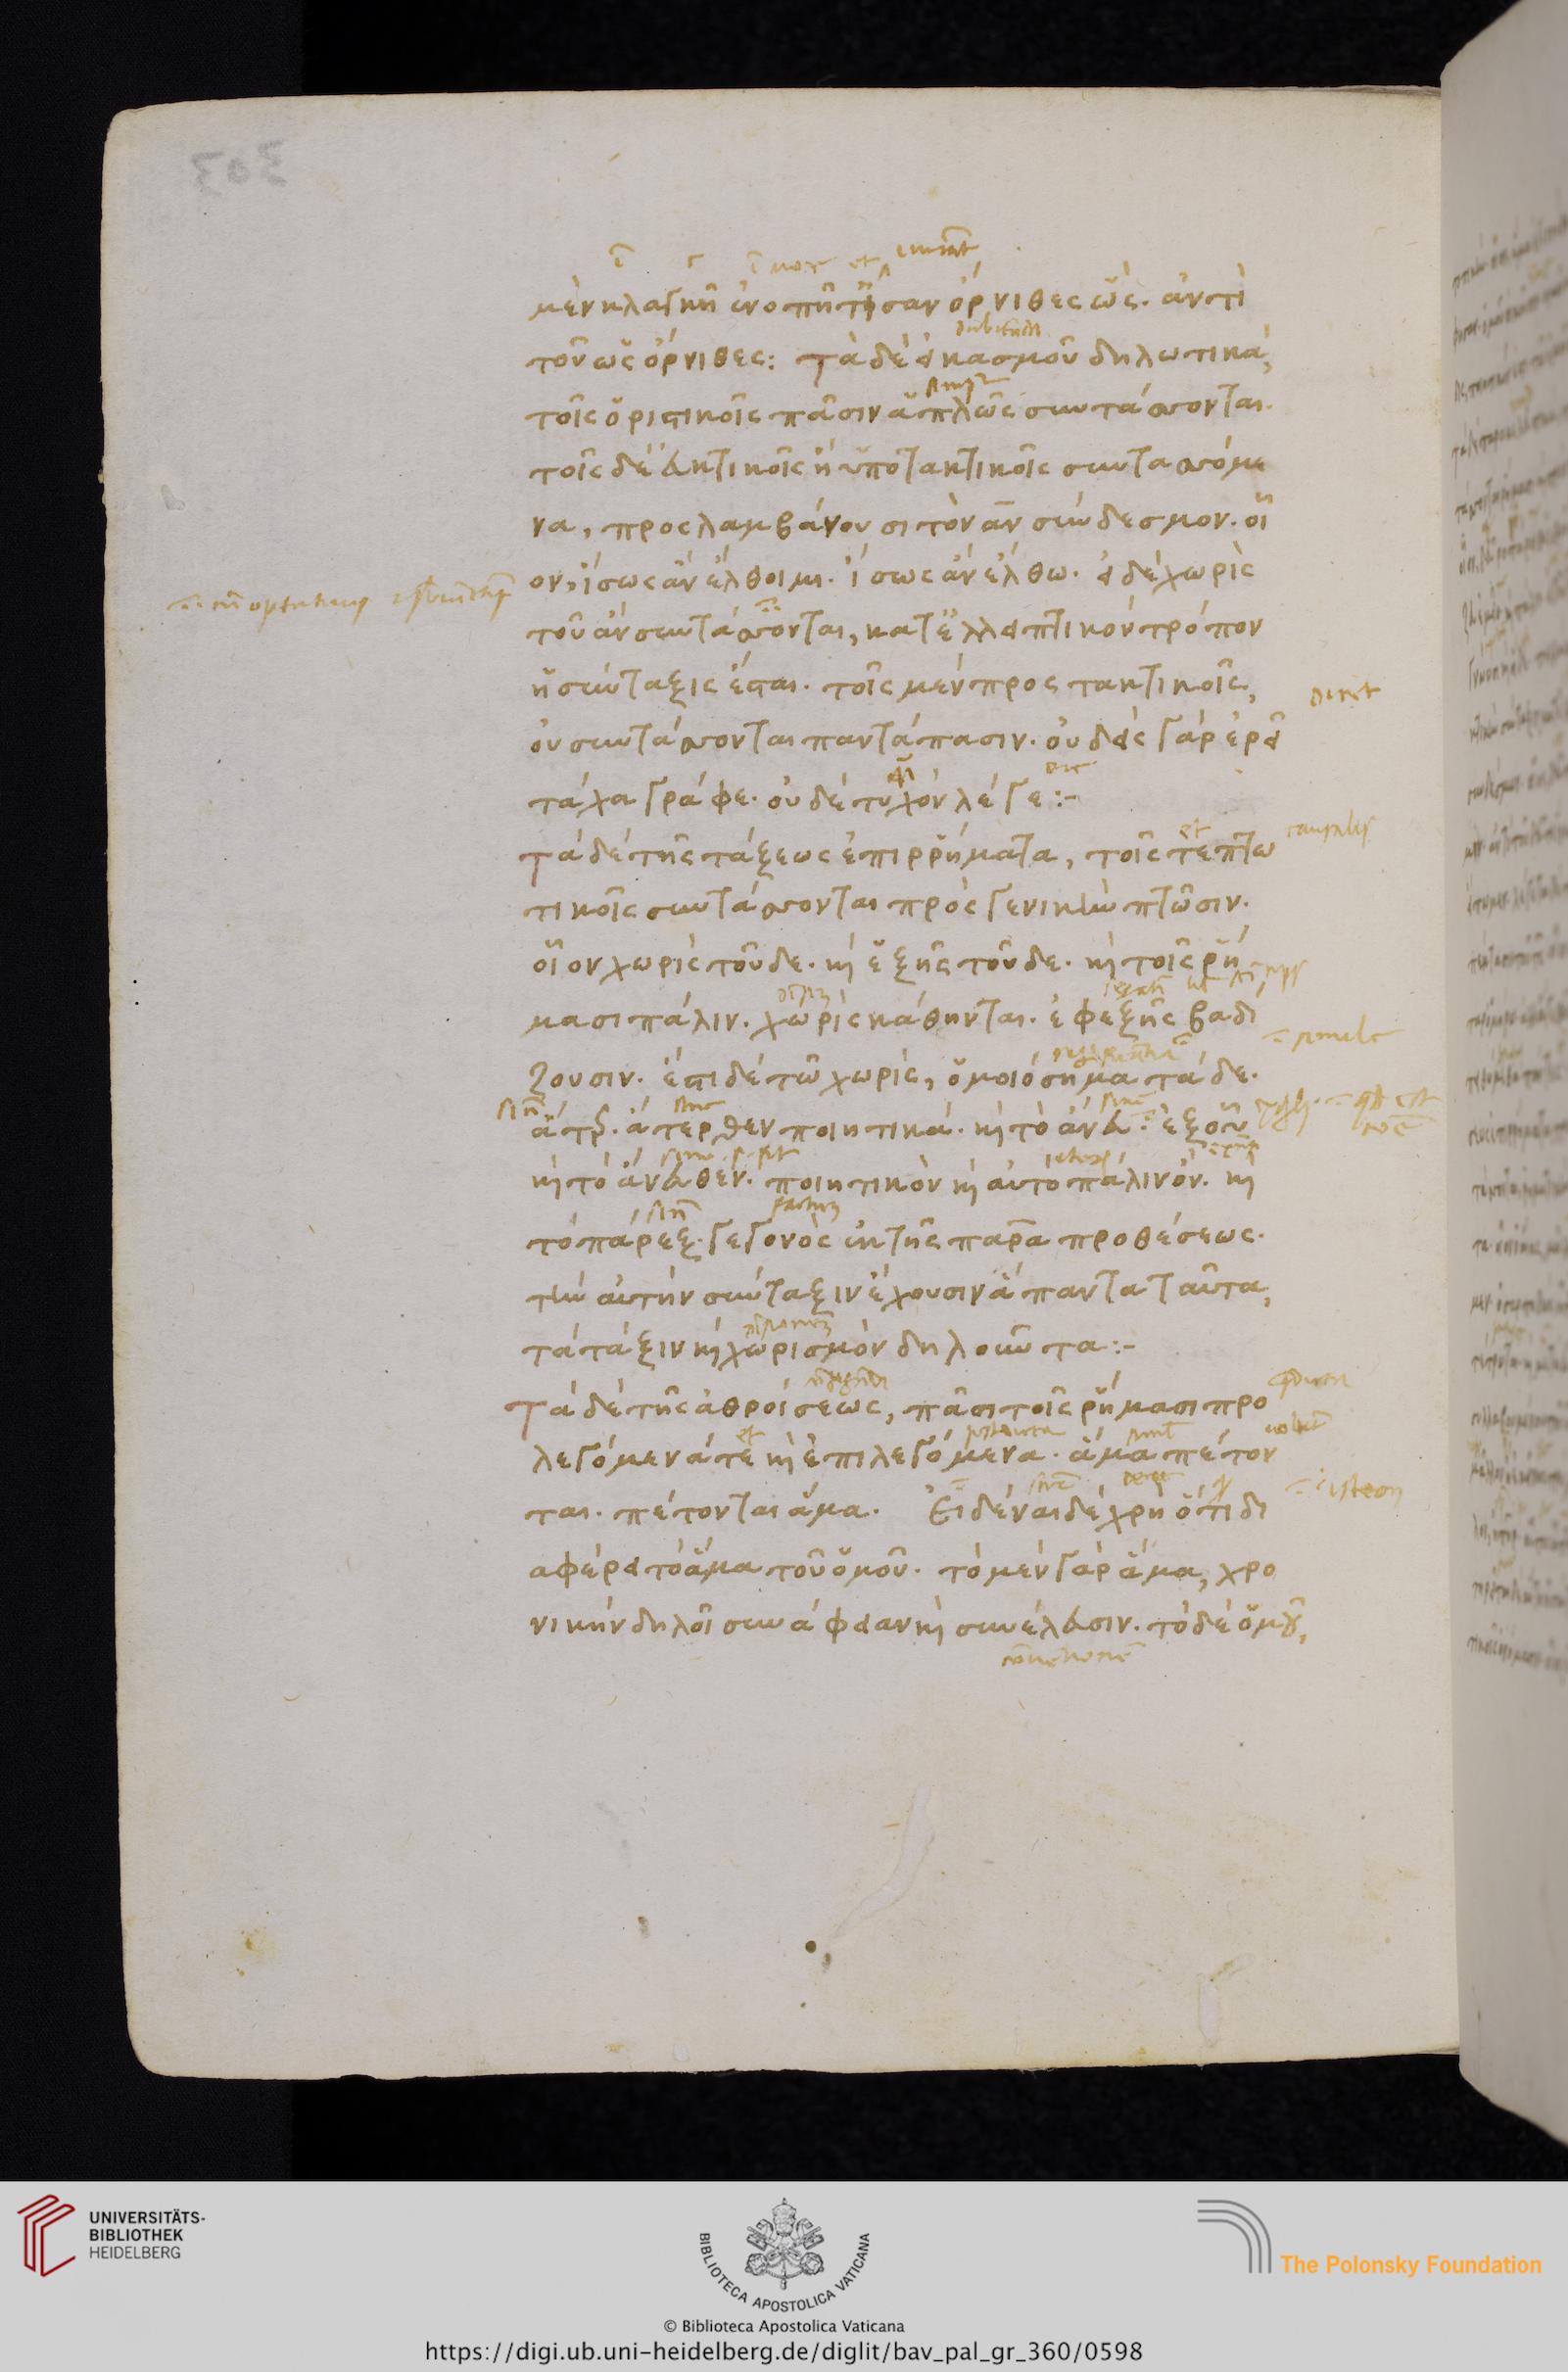 μὲν κλαγγῇ ἐνοπῇ τ' ἴσαν ὄρνιθες ὥς. ἀντὶ
τοῦ ὡς ὄρνιθες: Τὰ δὲ εἰκασμοῦ δηλωτικά,
τοῖς ὁριστικοῖς πᾶσιν ἁπλῶς συντάσσονται.
τοῖς δὲ εὐκτικοῖς ἢ ὑποτακτικοῖς συντασσόμε
να, προσλαμβάνουσι τὸν ἂν σύνδεσμον. οἷ
ον, ἴσως ἂν ἔλθοιμι. ἴσως ἂν ἔλθω. εἰ δὲ χωρὶς
τοῦ ἂν συντάσσονται, κατ' ἐλλειπτικὸν τρόπον
ἡ σύνταξις ἔσται. τοῖς μὲν προστακτικοῖς,
οὐ συντάσσονται παντάπασιν. οὐδεὶς γὰρ ἐρεῖ
τάχα γράφε. οὐδὲ τυχὸν λέγε:-
Τὰ δὲ τῆς τάξεως ἐπιρρήματα, τοῖς τε πτω
τικοῖς συντάσσονται πρὸς γενικὴν πτῶσιν.
οἷον χωρὶς τοῦδε. καὶ ἑξῆς τοῦδε. καὶ τοῖς ῥή
μασι πάλιν. χωρὶς κάθηνται. ἐφεξῆς βαδί
ζουσιν. ἔστι δὲ τῷ χωρὶς, ὁμοιόσημα τάδε.
ἄτερ. ἄτερθεν ποιητικά. καὶ τὸ ἄνευ. ἐξ οὗ
καὶ τὸ ἄνευθεν. ποιητικὸν καὶ αὐτὸ πάλιν ὄν. καὶ
τὸ πάρεξ. γεγονὸς ἐκ τῆς παρὰ προθέσεως.
τὴν αὐτὴν σύνταξιν ἔχουσιν ἅπαντα ταῦτα,
τὰ τάξιν καὶ χωρισμὸν δηλοῦντα:-
Τὰ δὲ τῆς ἀθροίσεως, πᾶσι τοῖς ῥήμασι προ
λεγόμενά τε καὶ ἐπιλεγόμενα. ἅμα πέτον
ται. πέτονται ἅμα. Εἰδέναι δὲ χρὴ ὅτι δι
αφέρει τὸ ἅμα τοῦ ὁμοῦ. τὸ μὲν γὰρ ἅμα, χρο
νικὴν δηλοῖ συνάφειαν καὶ συνέλευσιν. τὸ δὲ ὁμοῦ,
UNIVERSITÄTS-
BIBLIOTHEK
HEIDELBERG
BIBLIOTECA APOSTOLICA VATICANA
The Polonsky Foundation
© Biblioteca Apostolica Vaticana
https://digi.ub.uni-heidelberg.de/diglit/bav_pal_gr_360/0598